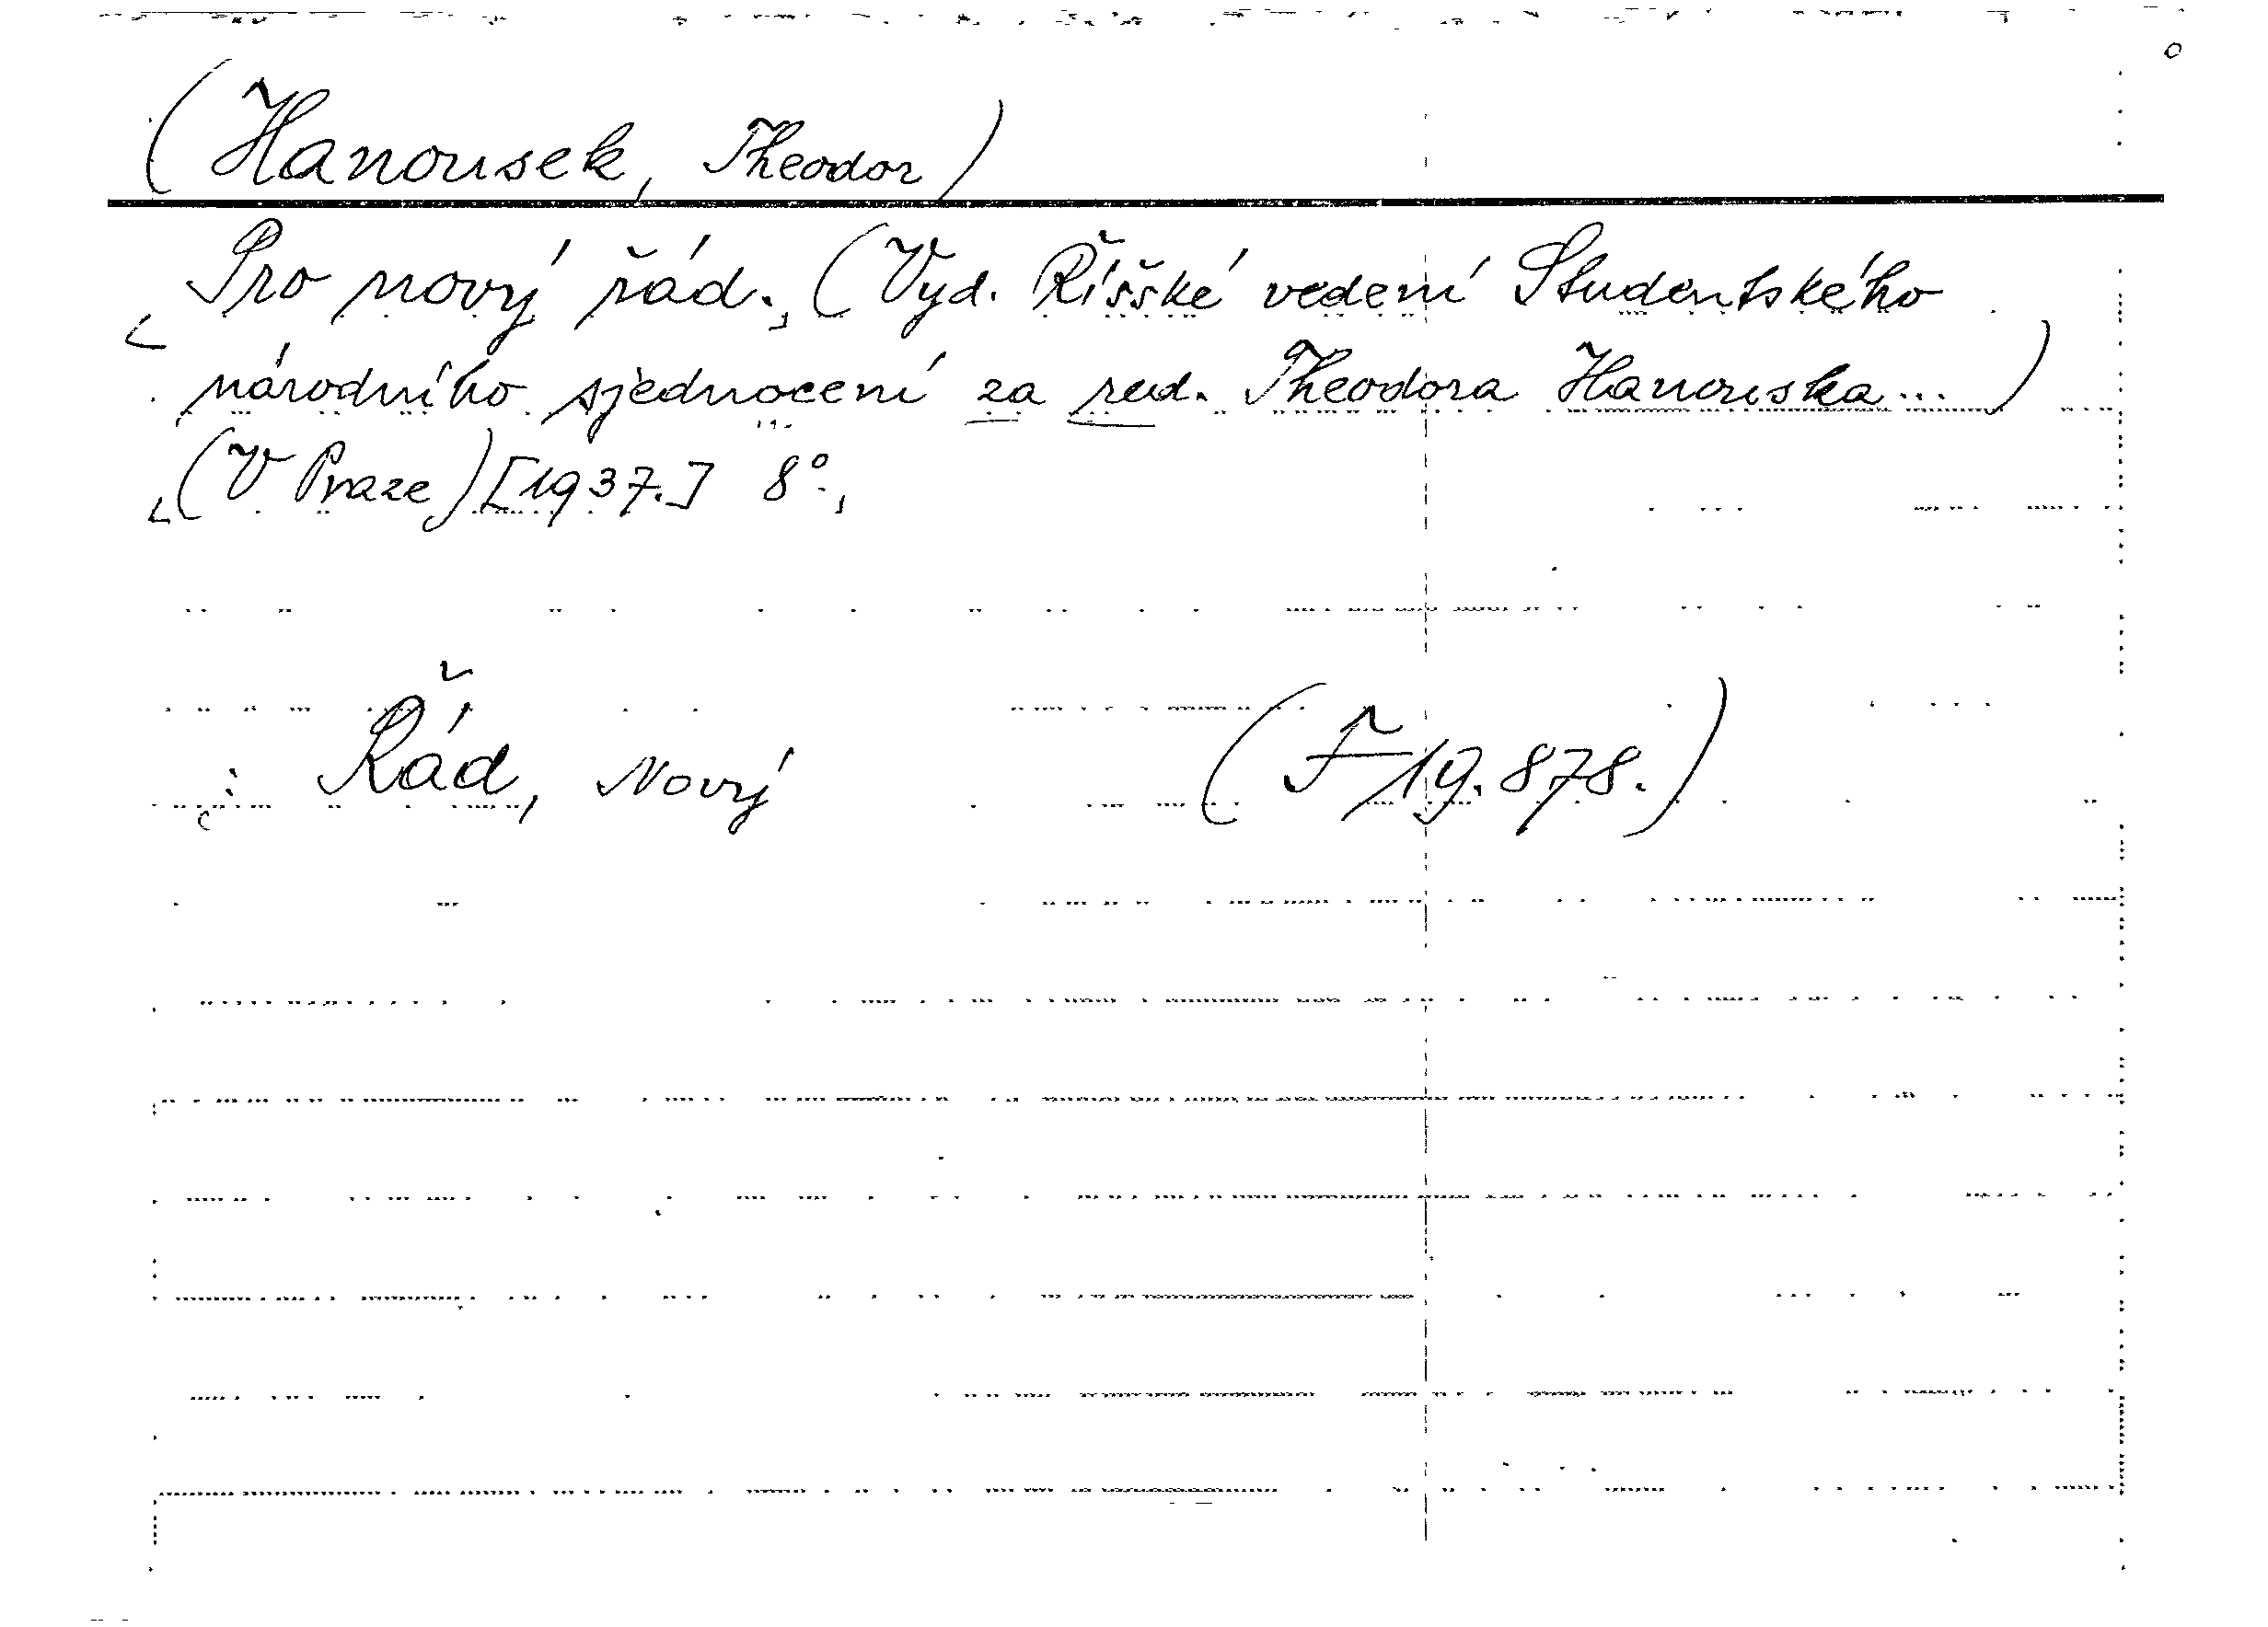 (Hanousek, Theodor)
Pro nový řád. (Vyd. Říšské vedení Studentského
národního sjednocení za red. Theodora Hanouska...)
(V Praze) [1937.] 8°.
: Řád, Nový (F 19.878.)